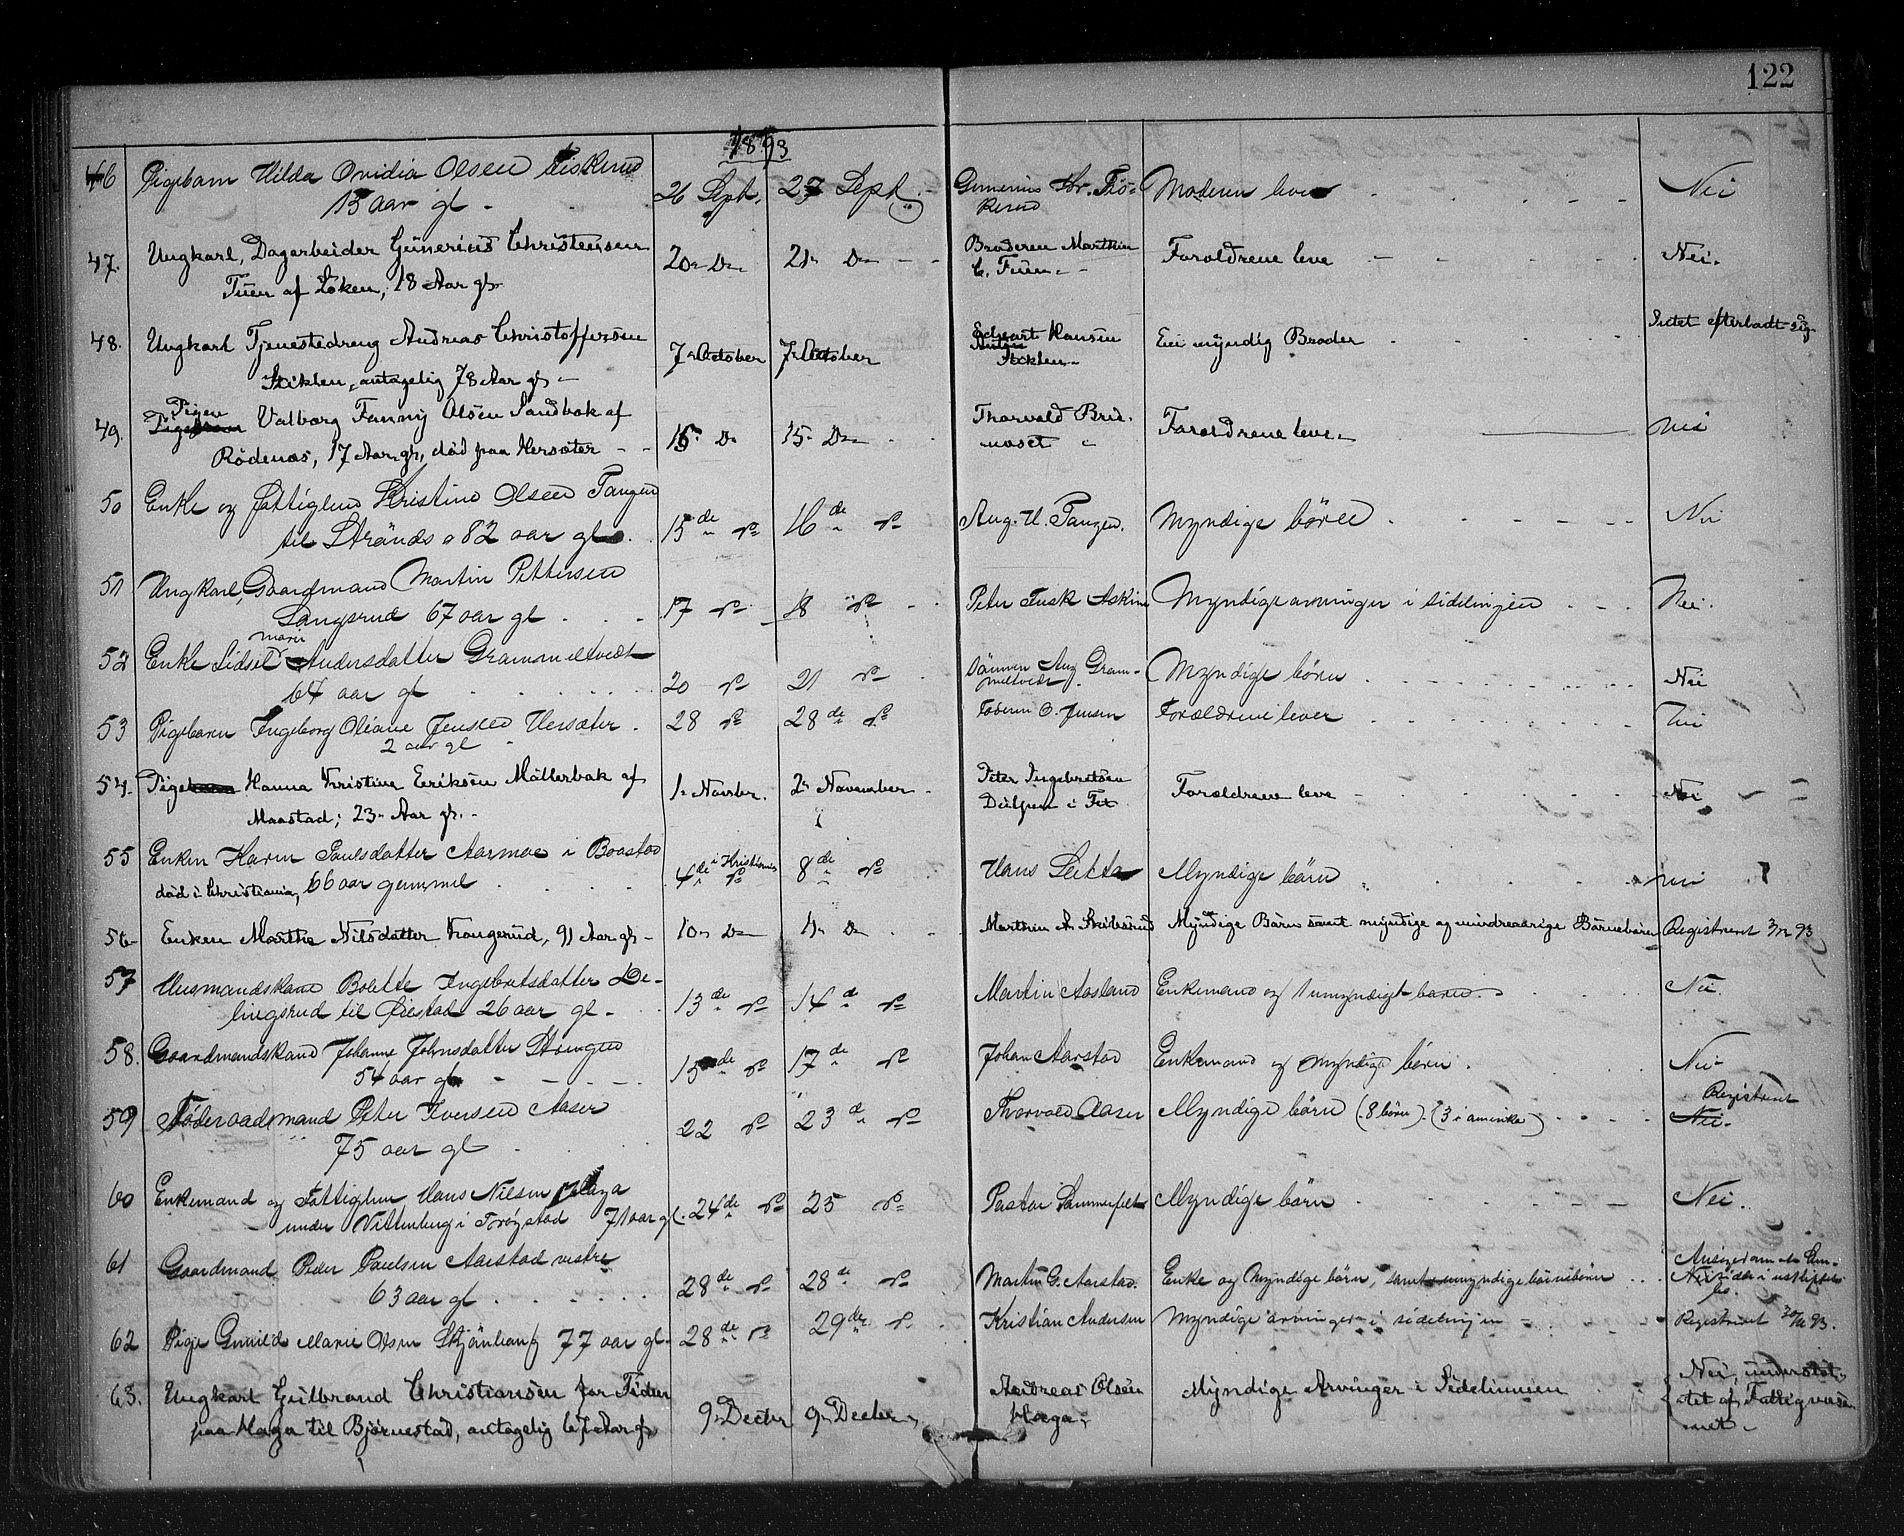 122
1893
46 Pigebarn Hilda Ovidia Olsen Fiskerud 26 Sept. 27 Sept. Gunerius Moderen lever Nei
15 aar gl kerud
47. Ungkarl, Dagarbeider Günerius Christensen 20 Do 21 Do Broderen Marthin Forældrene leve Nei.
Tuen af Löken, 18 Aar gl. C. Tuen
48. Ungkarl Tjenestedreng Andreas Christoffersen 7 October 7 October Hansen Een myndig Broder Intet efterladt sig
Sticklen, antagelig 78 Aar gl. Sticklen
49. Pigen Valborg Fanny Olsen Sandbæk af 15 Do 15 Do Thorvald Bred- Forældrene leve Nei
Rödenæs, 17 Aar gl, död paa Hersæter moset
50 Enke og Fattiglem Kristine Olsen Tangen 15de do 16de do Aug. H. Tangen. Myndige börn Nei
til Strånds 82 aar gl.
51 Ungkarl, Gaardmand Martin Pettersen 17 do 18 do Peter Tusk Askim Myndige arvinger i sidelinjen Nei.
Langsrud 67 aar gl
52 Enke Sidsel Marie Andersdatter Grammeltvedt 20 do 21 do Sönnen Aug Gram- Myndige börn Nei
64 aar gl meltvedt
53 Pigebarn Ingeborg Oliane Jensen Hersæter 28 do 28de do Faderen O. Jensen Forældrene lever Nei
2 aar gl
54. Pige Hanna Kristine Eriksen Möllerbak af 1 Novbr. 2 November Peter Ingebretsen Forældrene leve Nei
Maastad; 23 Aar gl. i Tr
55 Enken Karen Paulsdatter Aarmoe i Baastad 4de i Kristiania do 8de do Hans Sletta Myndige börn Nei
död i Christiania, 66 aar gammel
56 Enken Marthe Nilsdatter Haugerud, 91 Aar gl 10 Do 11 Do Marthin A. Myndige Börn samt myndige og mindreaarige Börnebörn Registreret 93
57 Husmandskone Bolette Ingebretsdatter De- 13de do 14de do Martin Aasland Enkemand og 1 umyndigt barn Nei.
lingsrud til Öiestad 26 aar gl.
58. Gaardmandskone Johanne Johnsdatter 15de do 17de do Johan Aarstad Enkemand og myndige börn Nei
54 aar gl
59 Föderaadsmand Peter Iversen Aaser 22 do 23d do Thorvald Aaser Myndige börn (8 börn) (3 i amerika) Registreret Nei.
75 aar gl
60 Enkemand og Fattiglem Hans Nilsen Haga 24de do 25 do Pastor Sommerfelt Myndige börn Nei.
under Vittenberg i Trögstad 71 aar gl.
61 Gaardmand Peder Paulsen Aarstad vestre 28de do 28de do Martin G. Aarstad. Enke og Myndige börn, samt umyndige börnebörn Nei
63 aar gl
62 Pige Gunild Marie Olsen Skjönhaug 77 aar gl. 28de do 29de do Kristian Andersen Myndige arvinger i sidelinjen Registreret 93.
63. Ungkarl Gulbrand Christiansen för Tiden 9 Decbr 9 Decbr Andreas Olsen Myndige Arvinger i Sidelinien Nei, understöt-
paa Haga til Björnestad, antagelig 67 Aar gl Haga tet af Fattigvæse-
net